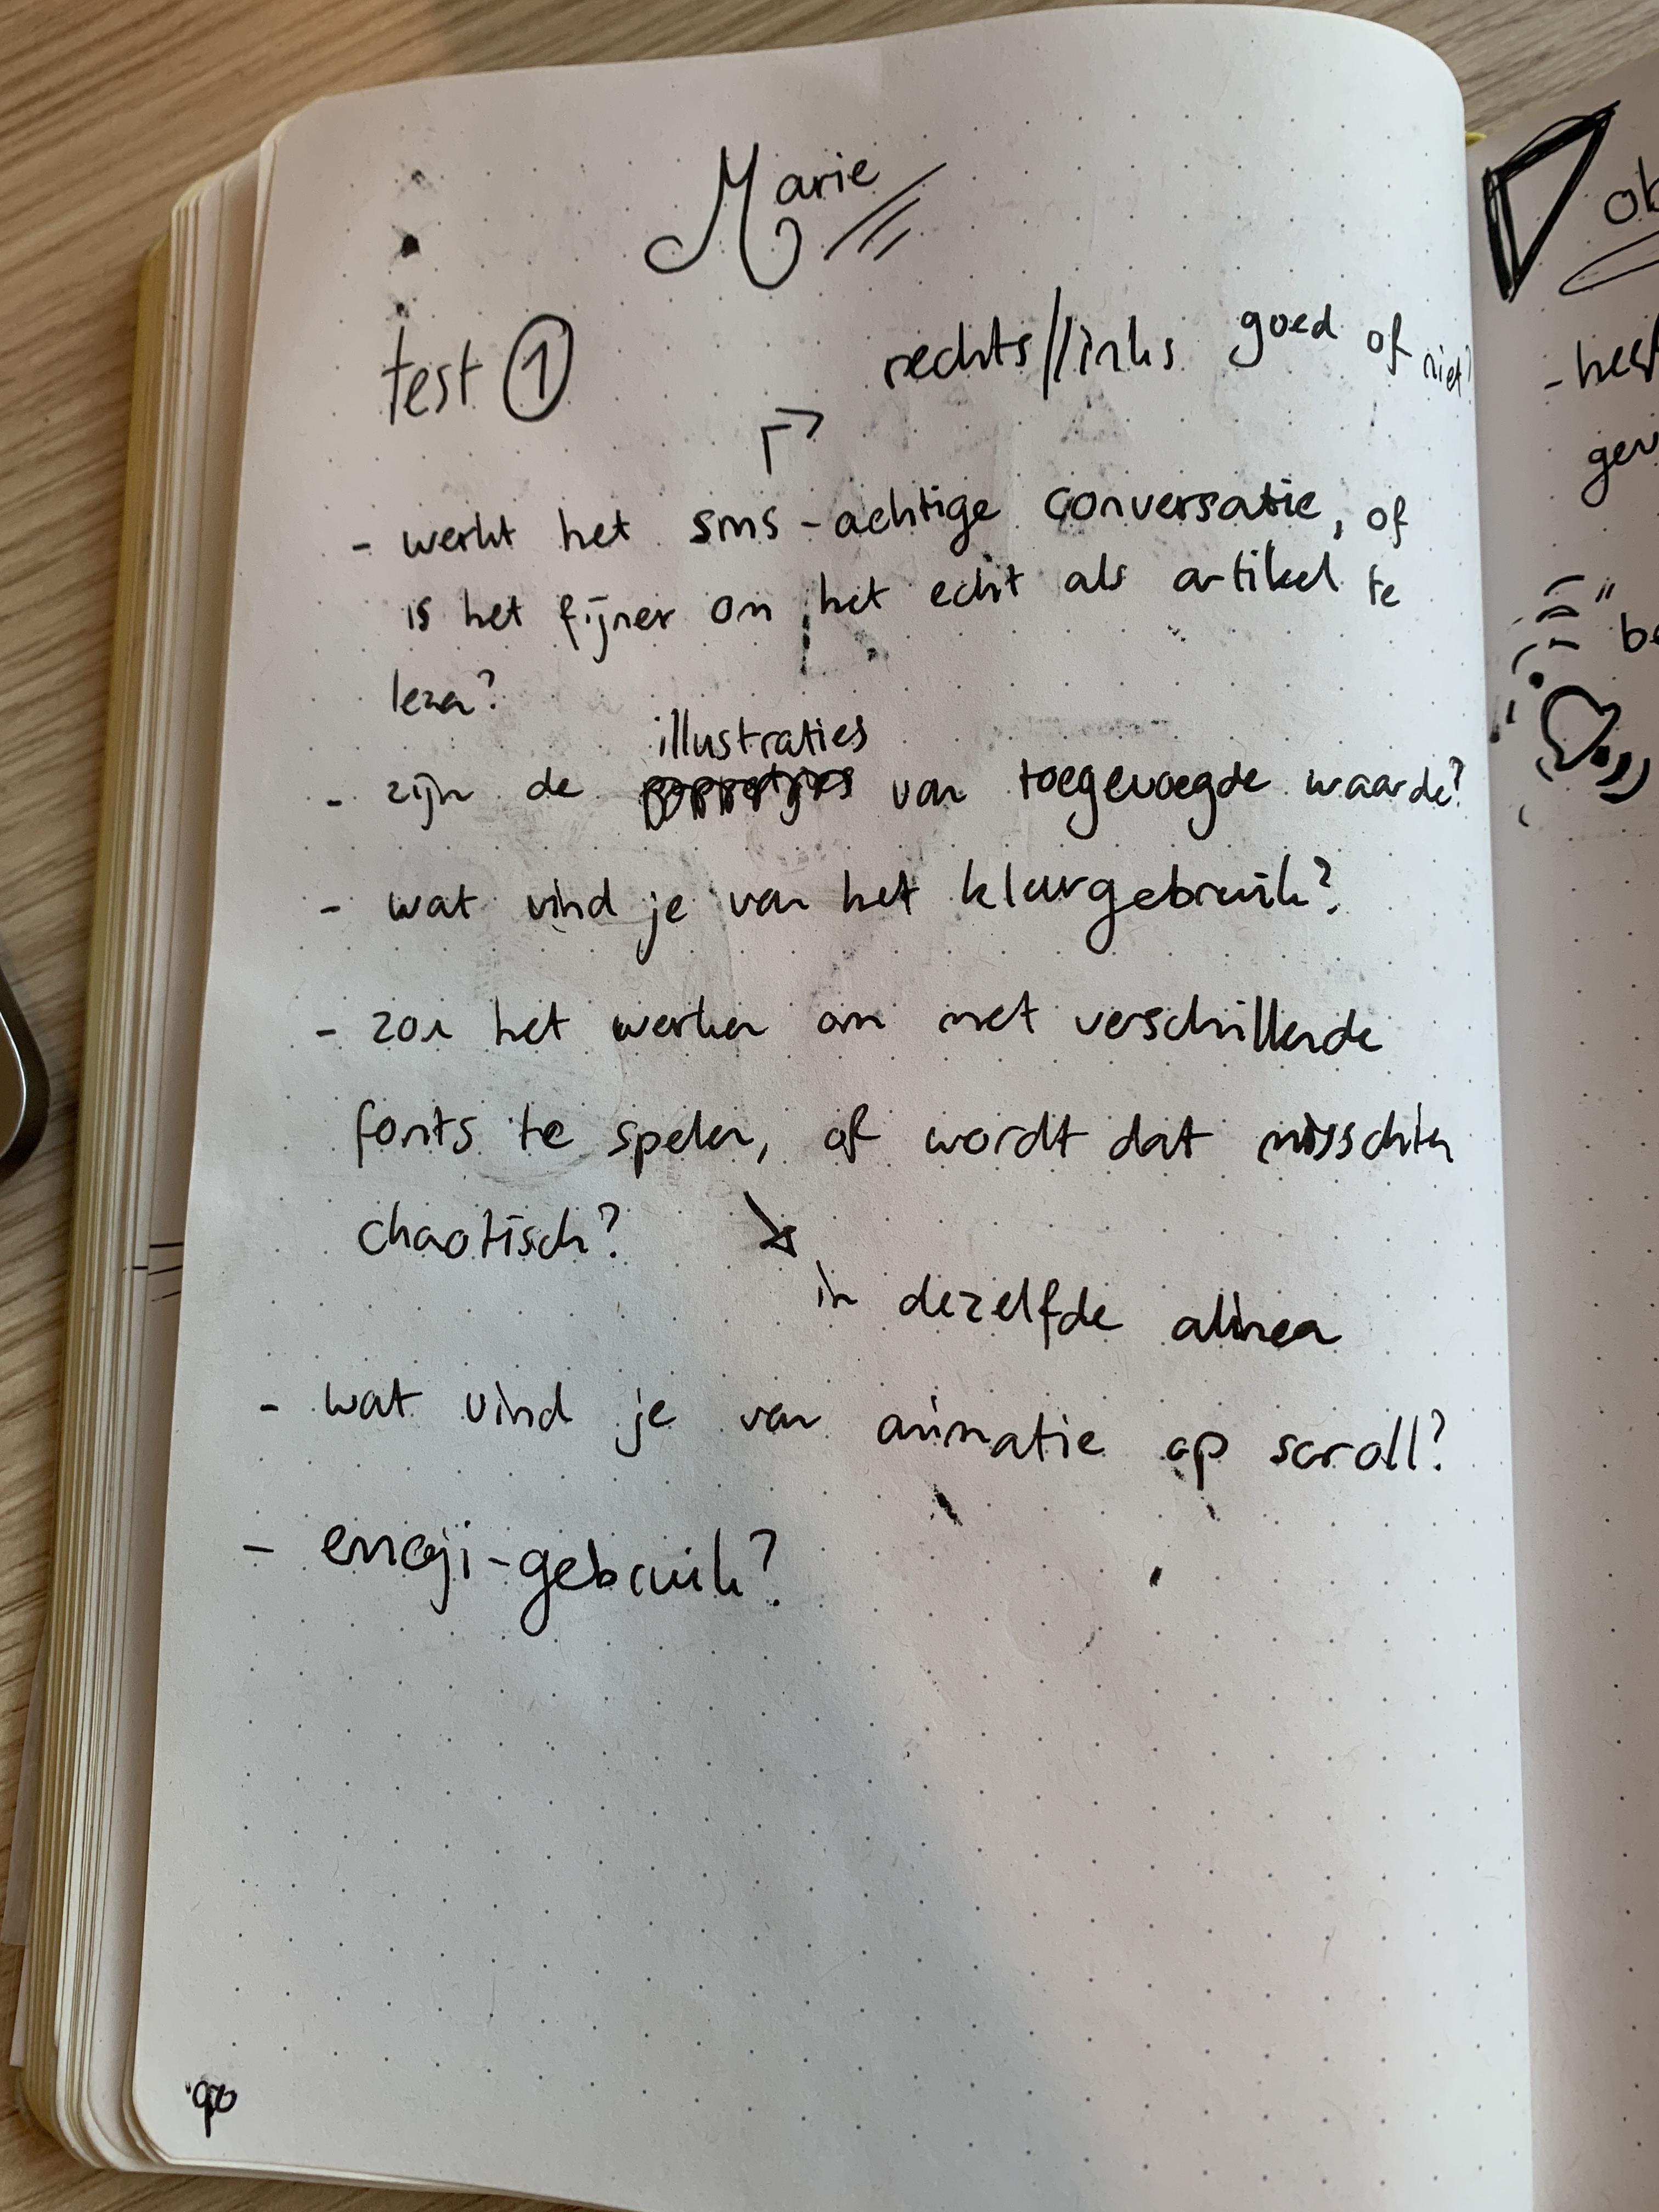 Marie
test ①
rechts//links goed of niet?
- werkt het sms-achtige conversatie, of
is het fijner om het echt als artikel te
lezen?
illustraties
- zijn de poppetjes van toegevoegde waarde?
- wat vind je van het kleurgebruik?
- zou het werken om met verschillende
fonts te spelen, of wordt dat misschien
chaotisch?
in dezelfde alinea
- wat vind je van animatie op scroll?
- emoji-gebruik?
ob
- heef
gev
"be